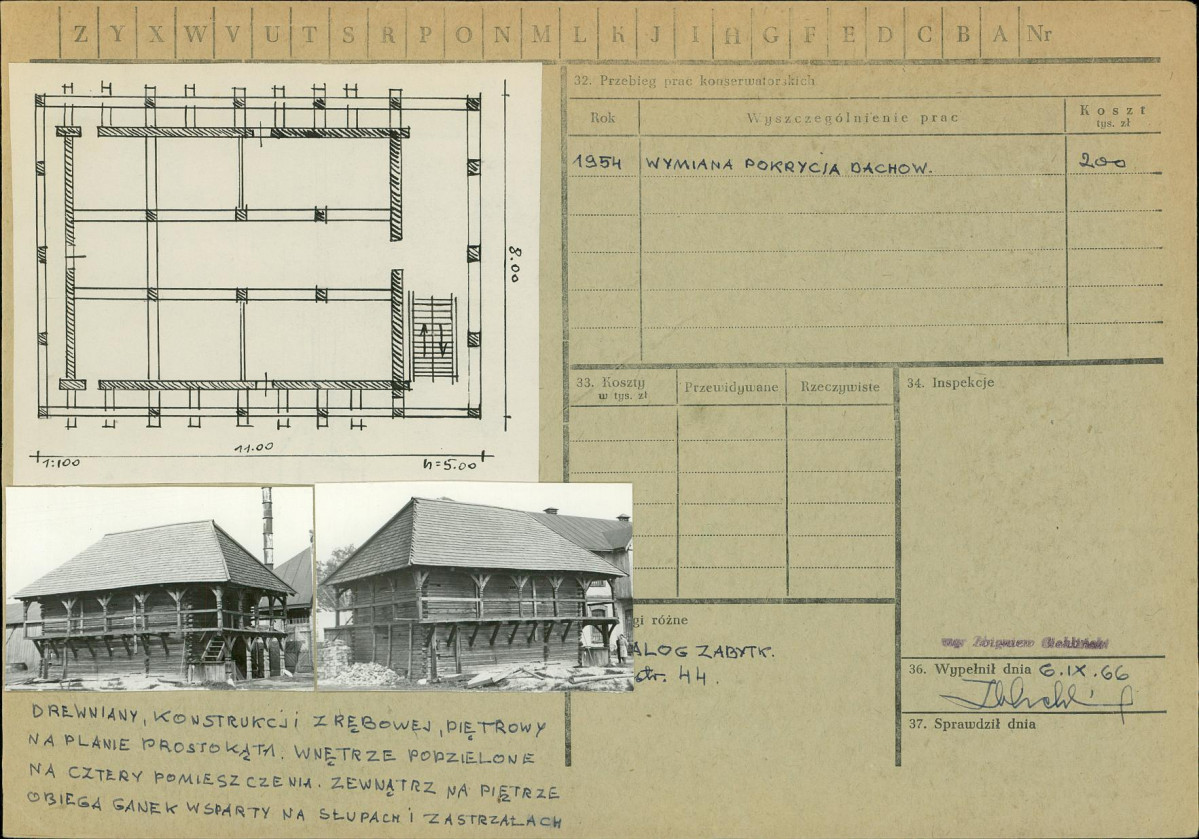 Z Y X W V U T S R P O N M L K J I H G F E D C B A Nr
8.00
11.00
1:100
h=5.00
32. Przebieg prac konserwatorskich
Rok Wyszczególnienie prac Koszt
tys. zł
1954 WYMIANA POKRYCIA DACHOW. 200
33. Koszty
w tys. zł
Przewidywane
Rzeczywiste
34. Inspekcje
gi różne
ALOG ZABYTK.
str. 44.
mgr Zbigniew
36. Wypełnił dnia 6.IX.66
37. Sprawdził dnia
DREWNIANY, KONSTRUKCJI ZRĘBOWEJ, PIĘTROWY
NA PLANIE PROSTOKĄTA. WNĘTRZE PODZIELONE
NA CZTERY POMIESZCZENIA. ZEWNĄTRZ NA PIĘTRZE
OBIEGA GANEK WSPARTY NA SŁUPACH I ZASTRZAŁACH